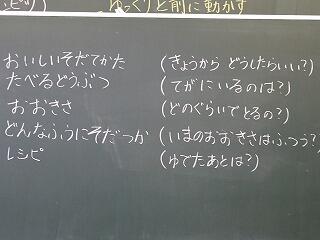 ゆっくりと前に動かす
おいしいそだてかた (きょうから どうしたらいい?)
たべるどうぶつ (てがにいるのは?)
おおきさ (どのぐらいでとるの?)
どんなふうにそだつか (いまのおおきさはふつう?)
レシピ (ゆでたあとは?)